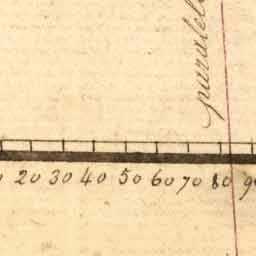 paralel
20 30 40 50 60 70 80